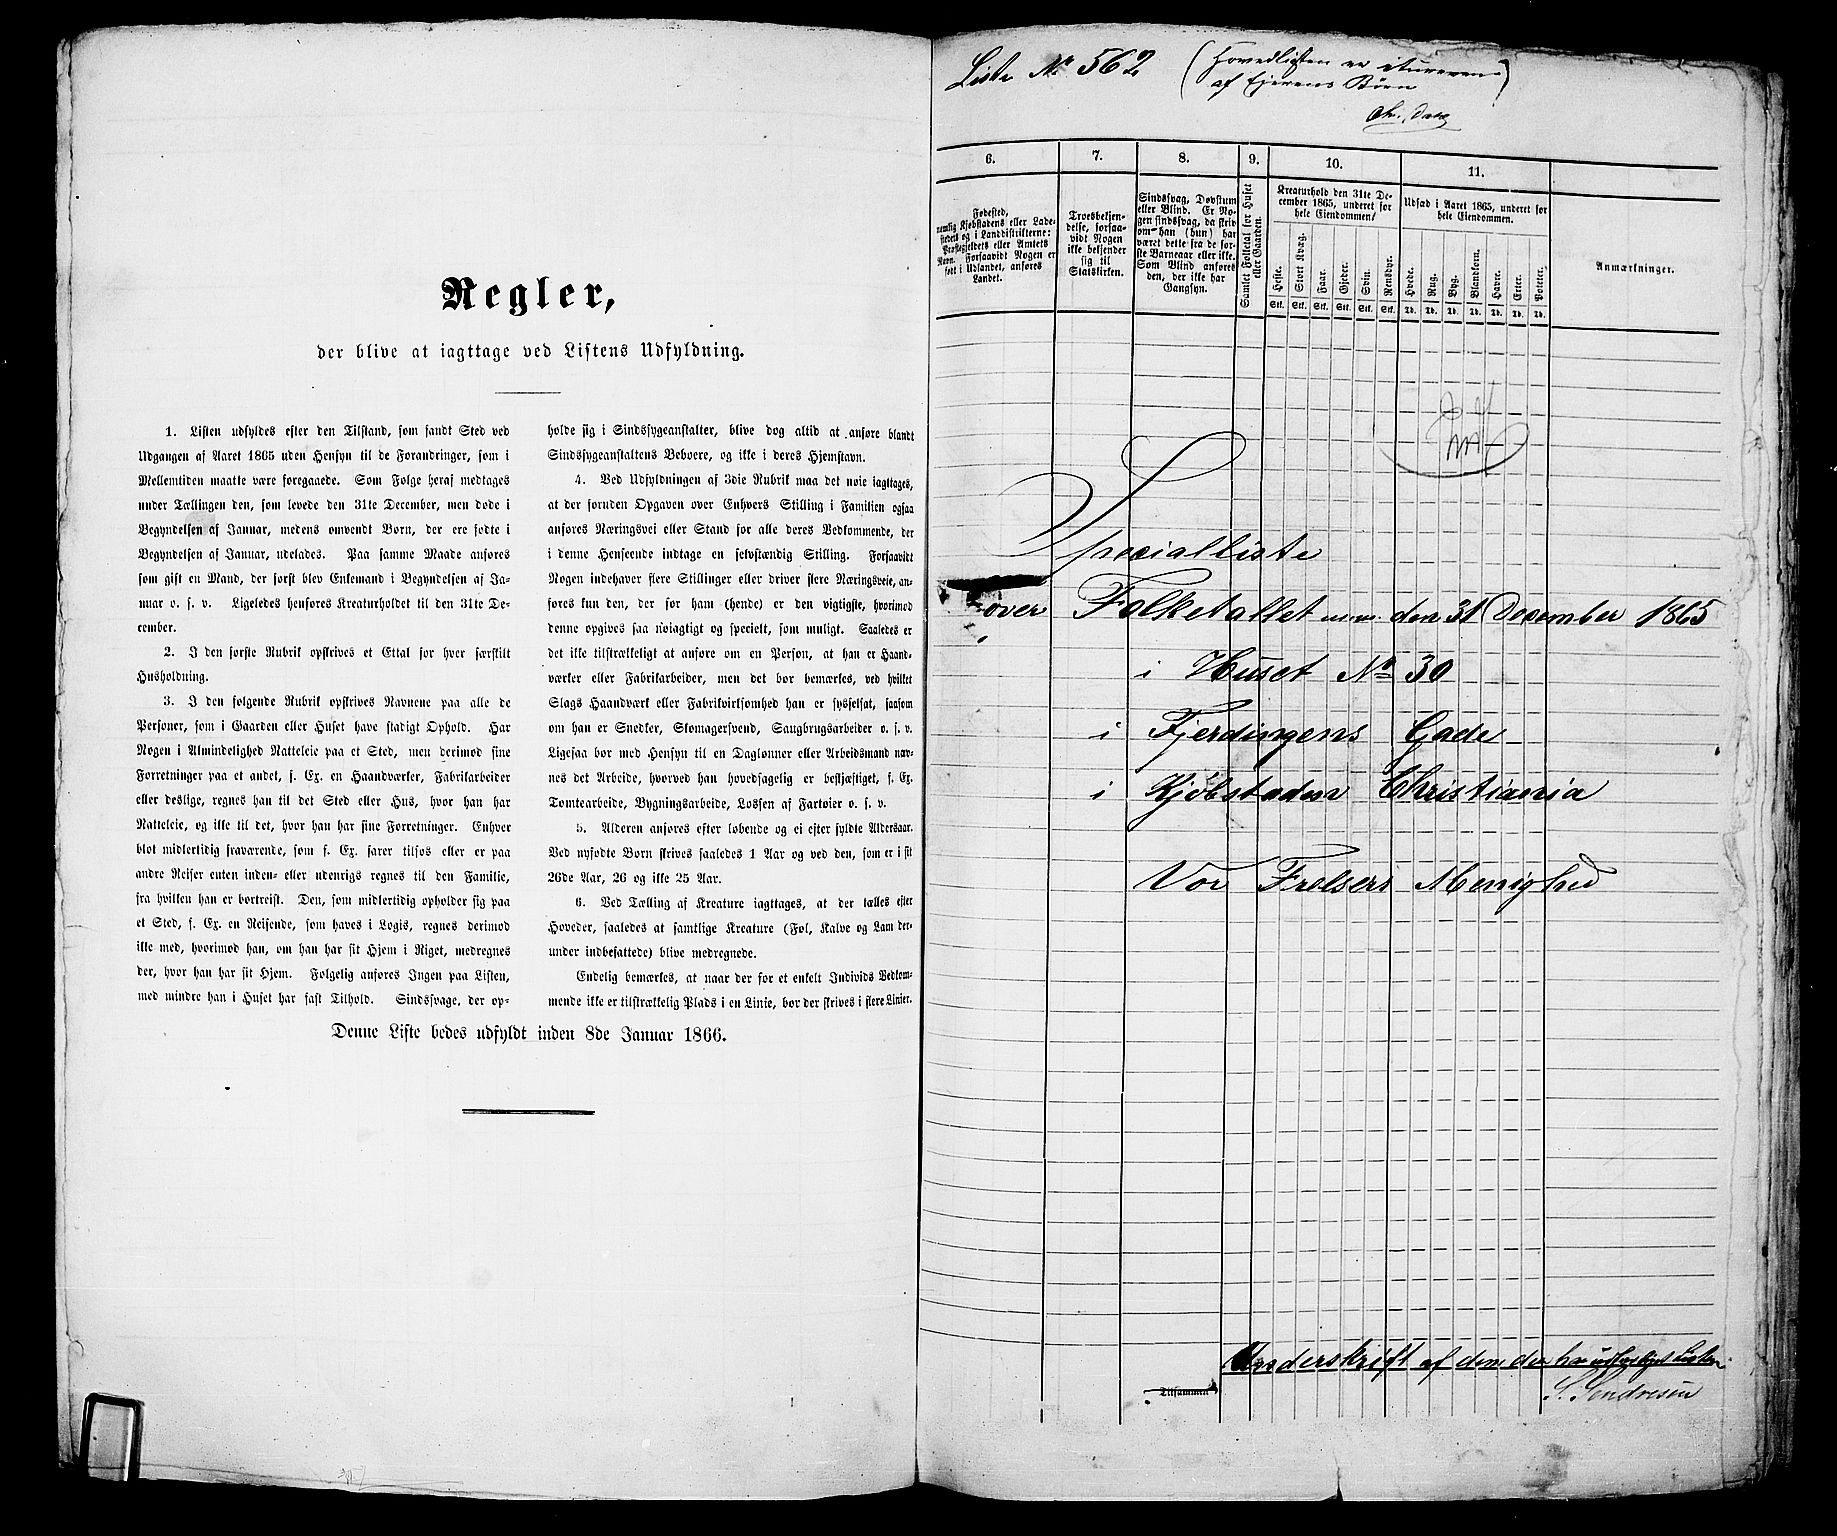 Regler,
der blive at iagttage ved Listens Udfyldning.
1. Listen udfyldes efter den Tilstand, som fandt Sted ved
Udgangen af Aaret 1865 uden Hensyn til de Forandringer, som i
Mellemtiden maatte være foregaaede. Som Følge heraf medtages
under Tællingen den, som levede den 31te December, men døde i
Begyndelsen af Januar, medens omvendt Børn, der ere fødte i
Begyndelsen af Januar, udelades. Paa samme Maade anføres
som gift en Mand, der først blev Enkemand i Begyndelsen af Ja-
nuar o. s. v. Ligeledes henføres Kreaturholdet til den 31te De-
cember.
2. I den første Rubrik opskrives et Ettal for hver særskilt
Husholdning.
3. I den følgende Rubrik opskrives Navnene paa alle de
Personer, som i Gaarden eller Huset have stadigt Ophold. Har
Nogen i Almindelighed Natteleie paa et Sted, men derimod sine
Forretninger paa et andet, f. Ex. en Haandværker, Fabrikarbeider
eller deslige, regnes han til det Sted eller Hus, hvor han har
Natteleie, og ikke til det, hvor han har sine Forretninger. Enhver
blot midlertidig fraværende, som f. Ex. farer tilsøs eller er paa
andre Reiser enten inden- eller udenrigs regnes til den Familie,
fra hvilken han er bortreist. Den, som midlertidig opholder sig paa
et Sted, f. Ex. en Reisende, som haves i Logis, regnes derimod
ikke med, hvorimod han, om han har sit Hjem i Riget, medregnes
der, hvor han har sit Hjem. Følgelig anføres Ingen paa Listen,
med mindre han i Huset har fast Tilhold. Sindssvage, der op-
holde sig i Sindssygeanstalter, blive dog altid at anføre blandt
Sindssygeanstaltens Beboere, og ikke i deres Hjemstavn.
4. Ved Udfyldningen af 3die Rubrik maa det nøie iagttages,
at der foruden Opgaven over Enhvers Stilling i Familien ogsaa
anføres Næringsvei eller Stand for alle deres Vedkommende, der
i denne Henseende indtage en selvstændig Stilling. Forsaavidt
Nogen indehaver flere Stillinger eller driver flere Næringsveie, an-
føres kun den, der for ham (hende) er den vigtigste, hvorimod
denne opgives saa nøiagtigt og specielt, som muligt. Saaledes er
det ikke tilstrækkeligt at anføre om en Person, at han er Haand-
værker eller Fabrikarbeider, men det bør bemærkes, ved hvilket
Slags Haandværk eller Fabrikvirksomhed han er sysselsat, saasom
om han er Snedker, Skomagersvend, Saugbrugsarbeider o. s. v.
Ligesaa bør med Hensyn til en Daglønner eller Arbeidsmand næv-
nes det Arbeide, hvorved han hovedsagelig er beskjæftiget, f. Ex.
Tomtearbeide, Bygningsarbeide, Lossen af Fartøier o. s. v.
5. Alderen anføres efter løbende og ei efter fyldte Aldersaar.
Ved nyfødte Børn skrives saaledes 1 Aar og ved den, som er i sit
26de Aar, 26 og ikke 25 Aar.
6. Ved Tælling af Kreature iagttages, at der tælles efter
Hoveder, saaledes at samtlige Kreature (Føl, Kalve og Lam der-
under indbefattede) blive medregnede.
Endelig bemærkes, at naar der for et enkelt Individs Vedkom-
mende ikke er tilstrækkelig Plads i en Linie, bør der skrives i flere Linier.
Denne Liste bedes udfyldt inden 8de Januar 1866.
Liste No 562
(Hovedlisten er
af Ejerens Børn
6. 7. 8. 9. 10. 11.
Fødested,
nemlig Kjøbstadens eller Lade-
stedets og i Landdistrikterne:
Præstegjeldets eller Amtets
Navn. Forsaavidt Nogen er
født i Udlandet, anføres
Landet.
Troesbekjen-
delse, forsaa-
vidt Nogen
ikke bekjender
sig til
Statskirken.
Sindssvag, Døvstum
eller Blind. Er No-
gen sindssvag, da skriv
om han (hun) har
været dette fra de før-
ste Barneaar eller ikke.
Som Blind anføres
den, der ikke har
Gangsyn.
Samlet Folketal for Huset
eller Gaarden.
Kreaturhold den 31te De-
cember 1865, underet for
hele Eiendommen!
Heste. Stort Kvæg. Faar. Gjeder. Svin. Rensdyr.
Stk. Stk. Stk. Stk. Stk. Stk.
Udsæd i Aaret 1865, underet for
hele Eiendommen.
Hvede. Rug. Byg. Blandkorn. Havre. Erter. Poteter.
Td. Td. Td. Td. Td. Td. Td.
Anmærkninger.
Specialliste
over Folketallet den 31 December 1865
i Huset No 30
i Fjerdingens Gade
i Kjöbstaden Christiania
Vor Frelsers Menighed
Underskrift af den der har udfyldt Listen
Tilsammen